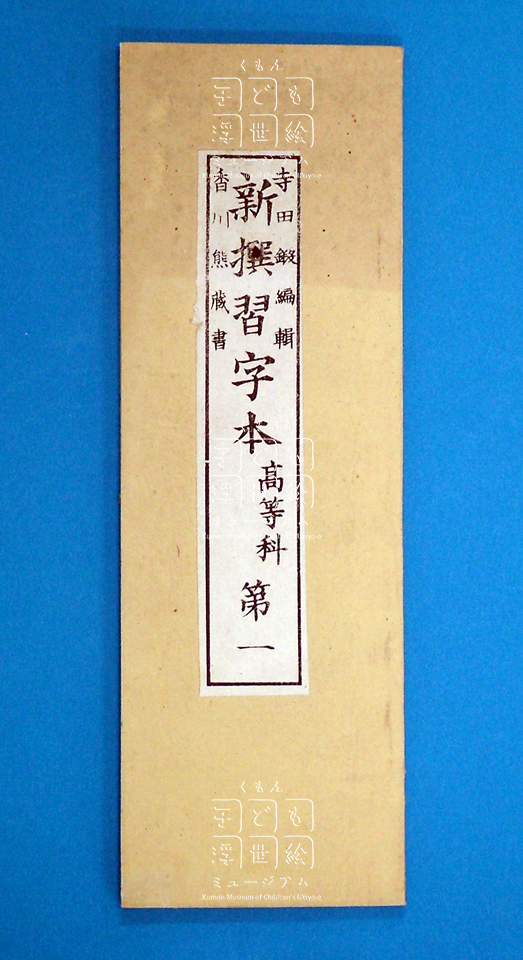 寺田鍛編輯
新撰習字本
高等科
第一
香川熊蔵書
くもん
子ども
浮世絵
ミュージアム
Kumon Museum of Children's Ukiyo-e
くもん
子ども
浮世絵
ミュージアム
Kumon Museum of Children's Ukiyo-e